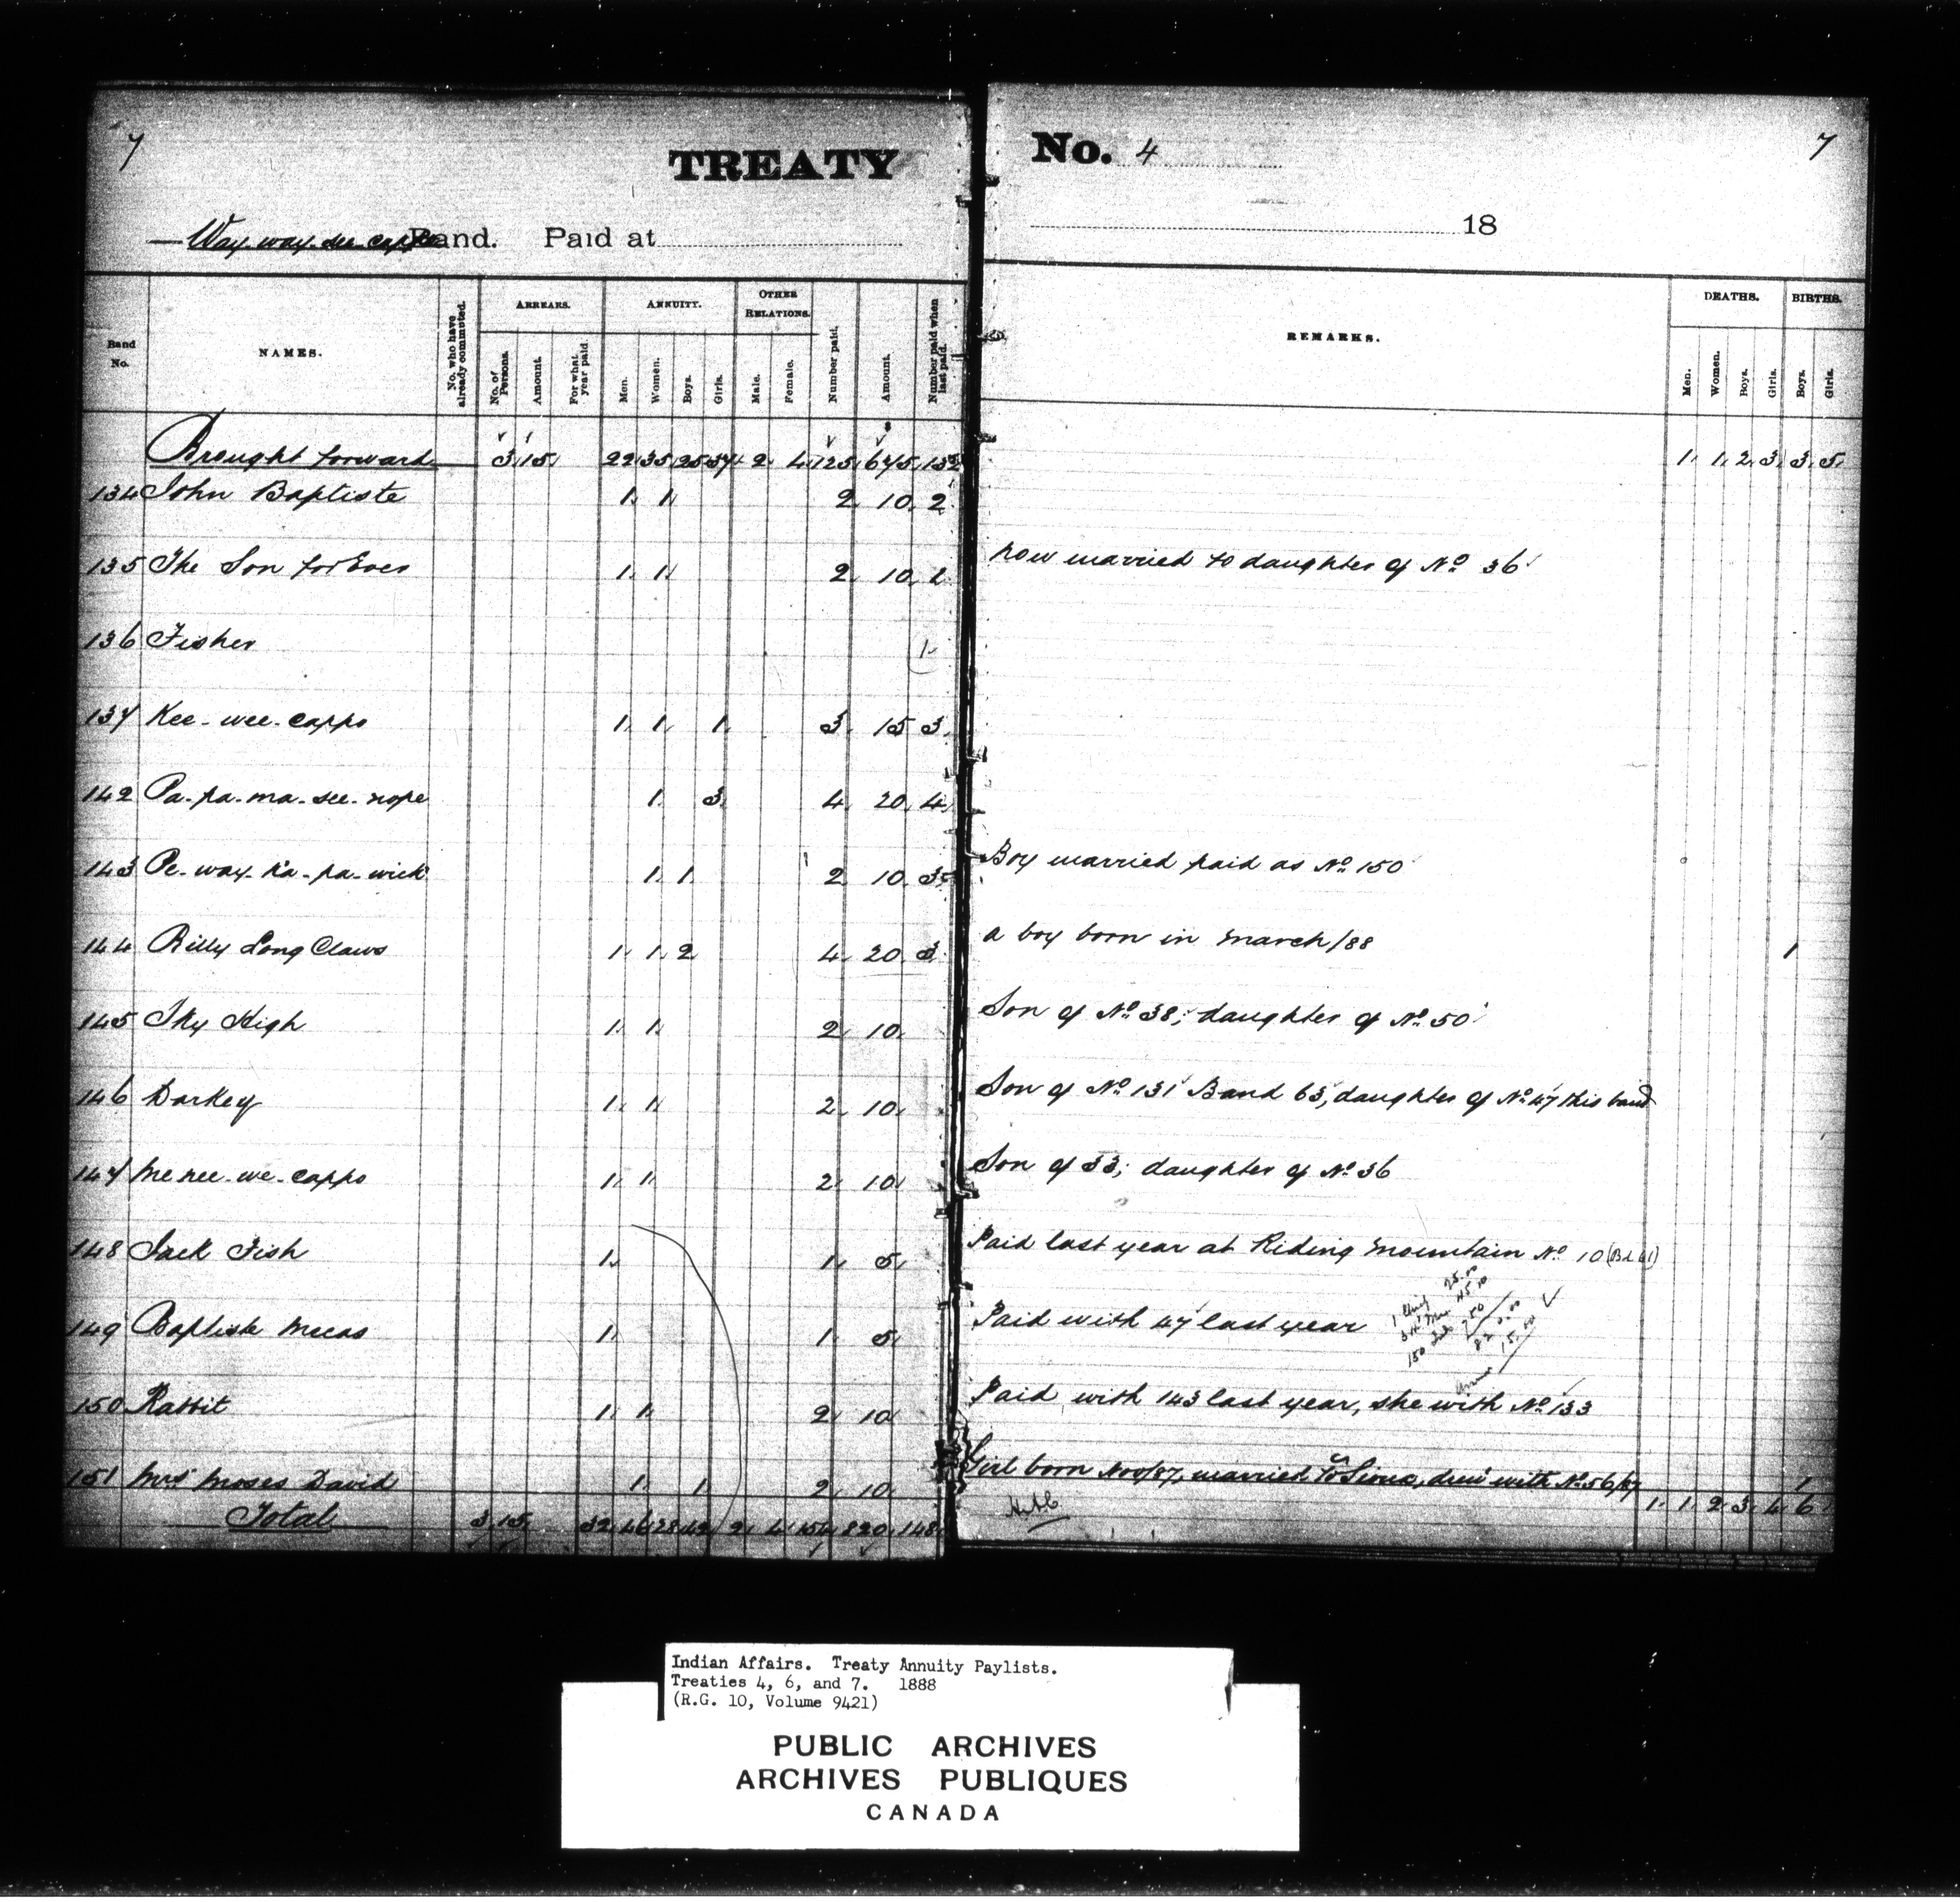 7 TREATY No. 4 7
Way-way-see-cappo Band. Paid at 18
Band No. NAMES. No. who have already commuted. ARREARS. No. of Persons. Amount. For what year paid ANNUITY. Men. Women. Boys. Girls. OTHER RELATIONS. Male. Female. Number paid. Amount. Number paid when last paid. REMARKS. DEATHS. Men. Women. Boys. Girls. BIRTHS. Boys. Girls.
Brought forward 3 15 22 35 25 37 2 4 125 645 132 1 1 2 3 3 5
134 John Baptiste 1 1 2 10 2
135 The Son for Ever 1 1 2 10 2 now married to daughter of No 36
136 Fisher 1
137 Kee-wee-cappo 1 1 1 3 15 3
142 Pa-pa-ma-see-nope 1 3 4 20 4
143 Pe-way-ka-pa-wick 1 1 2 10 3 Boy married paid as No 150
144 Billy Long Claws 1 1 2 4 20 3 a boy born in March/88 1
145 Sky High 1 1 2 10 Son of No 38; daughter of No 50
146 Darkey 1 1 2 10 Son of No 131 Band 63, daughter of No 47 this band
147 Me nee-we-cappo 1 1 2 10 Son of 33; daughter of No 36
148 Jack Fish 1 1 5 Paid last year at Riding Mountain No 10 (Bd 61)
149 Baptiste Mecas 1 1 5 Paid with 47 last year
150 Rabbit 1 1 2 10 Paid with 143 last year, she with No 133
151 Mrs Moses David 1 1 2 10 Girl born Nov/87, married to Sioux, drew with No 56/87 1
Total 3 15 32 46 28 42 2 4 154 820 148 1 1 2 3 4 6
Indian Affairs. Treaty Annuity Paylists.
Treaties 4, 6, and 7. 1888
(R.G. 10, Volume 9421)
PUBLIC ARCHIVES
ARCHIVES PUBLIQUES
CANADA